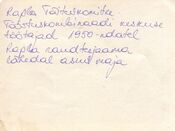 Rapla Täitevkomitee
Tööstuskombinaadi keskuse
töötajad 1950-ndatel
Rapla raudteejaama
lähedal asunud maja